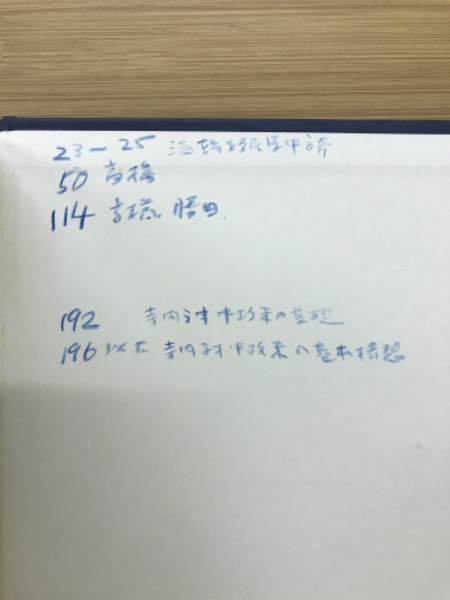 23-25
50 高橋
114 高橋 勝田
192 寺内対中政策の基礎
196以下 寺内対中政策の基本構想